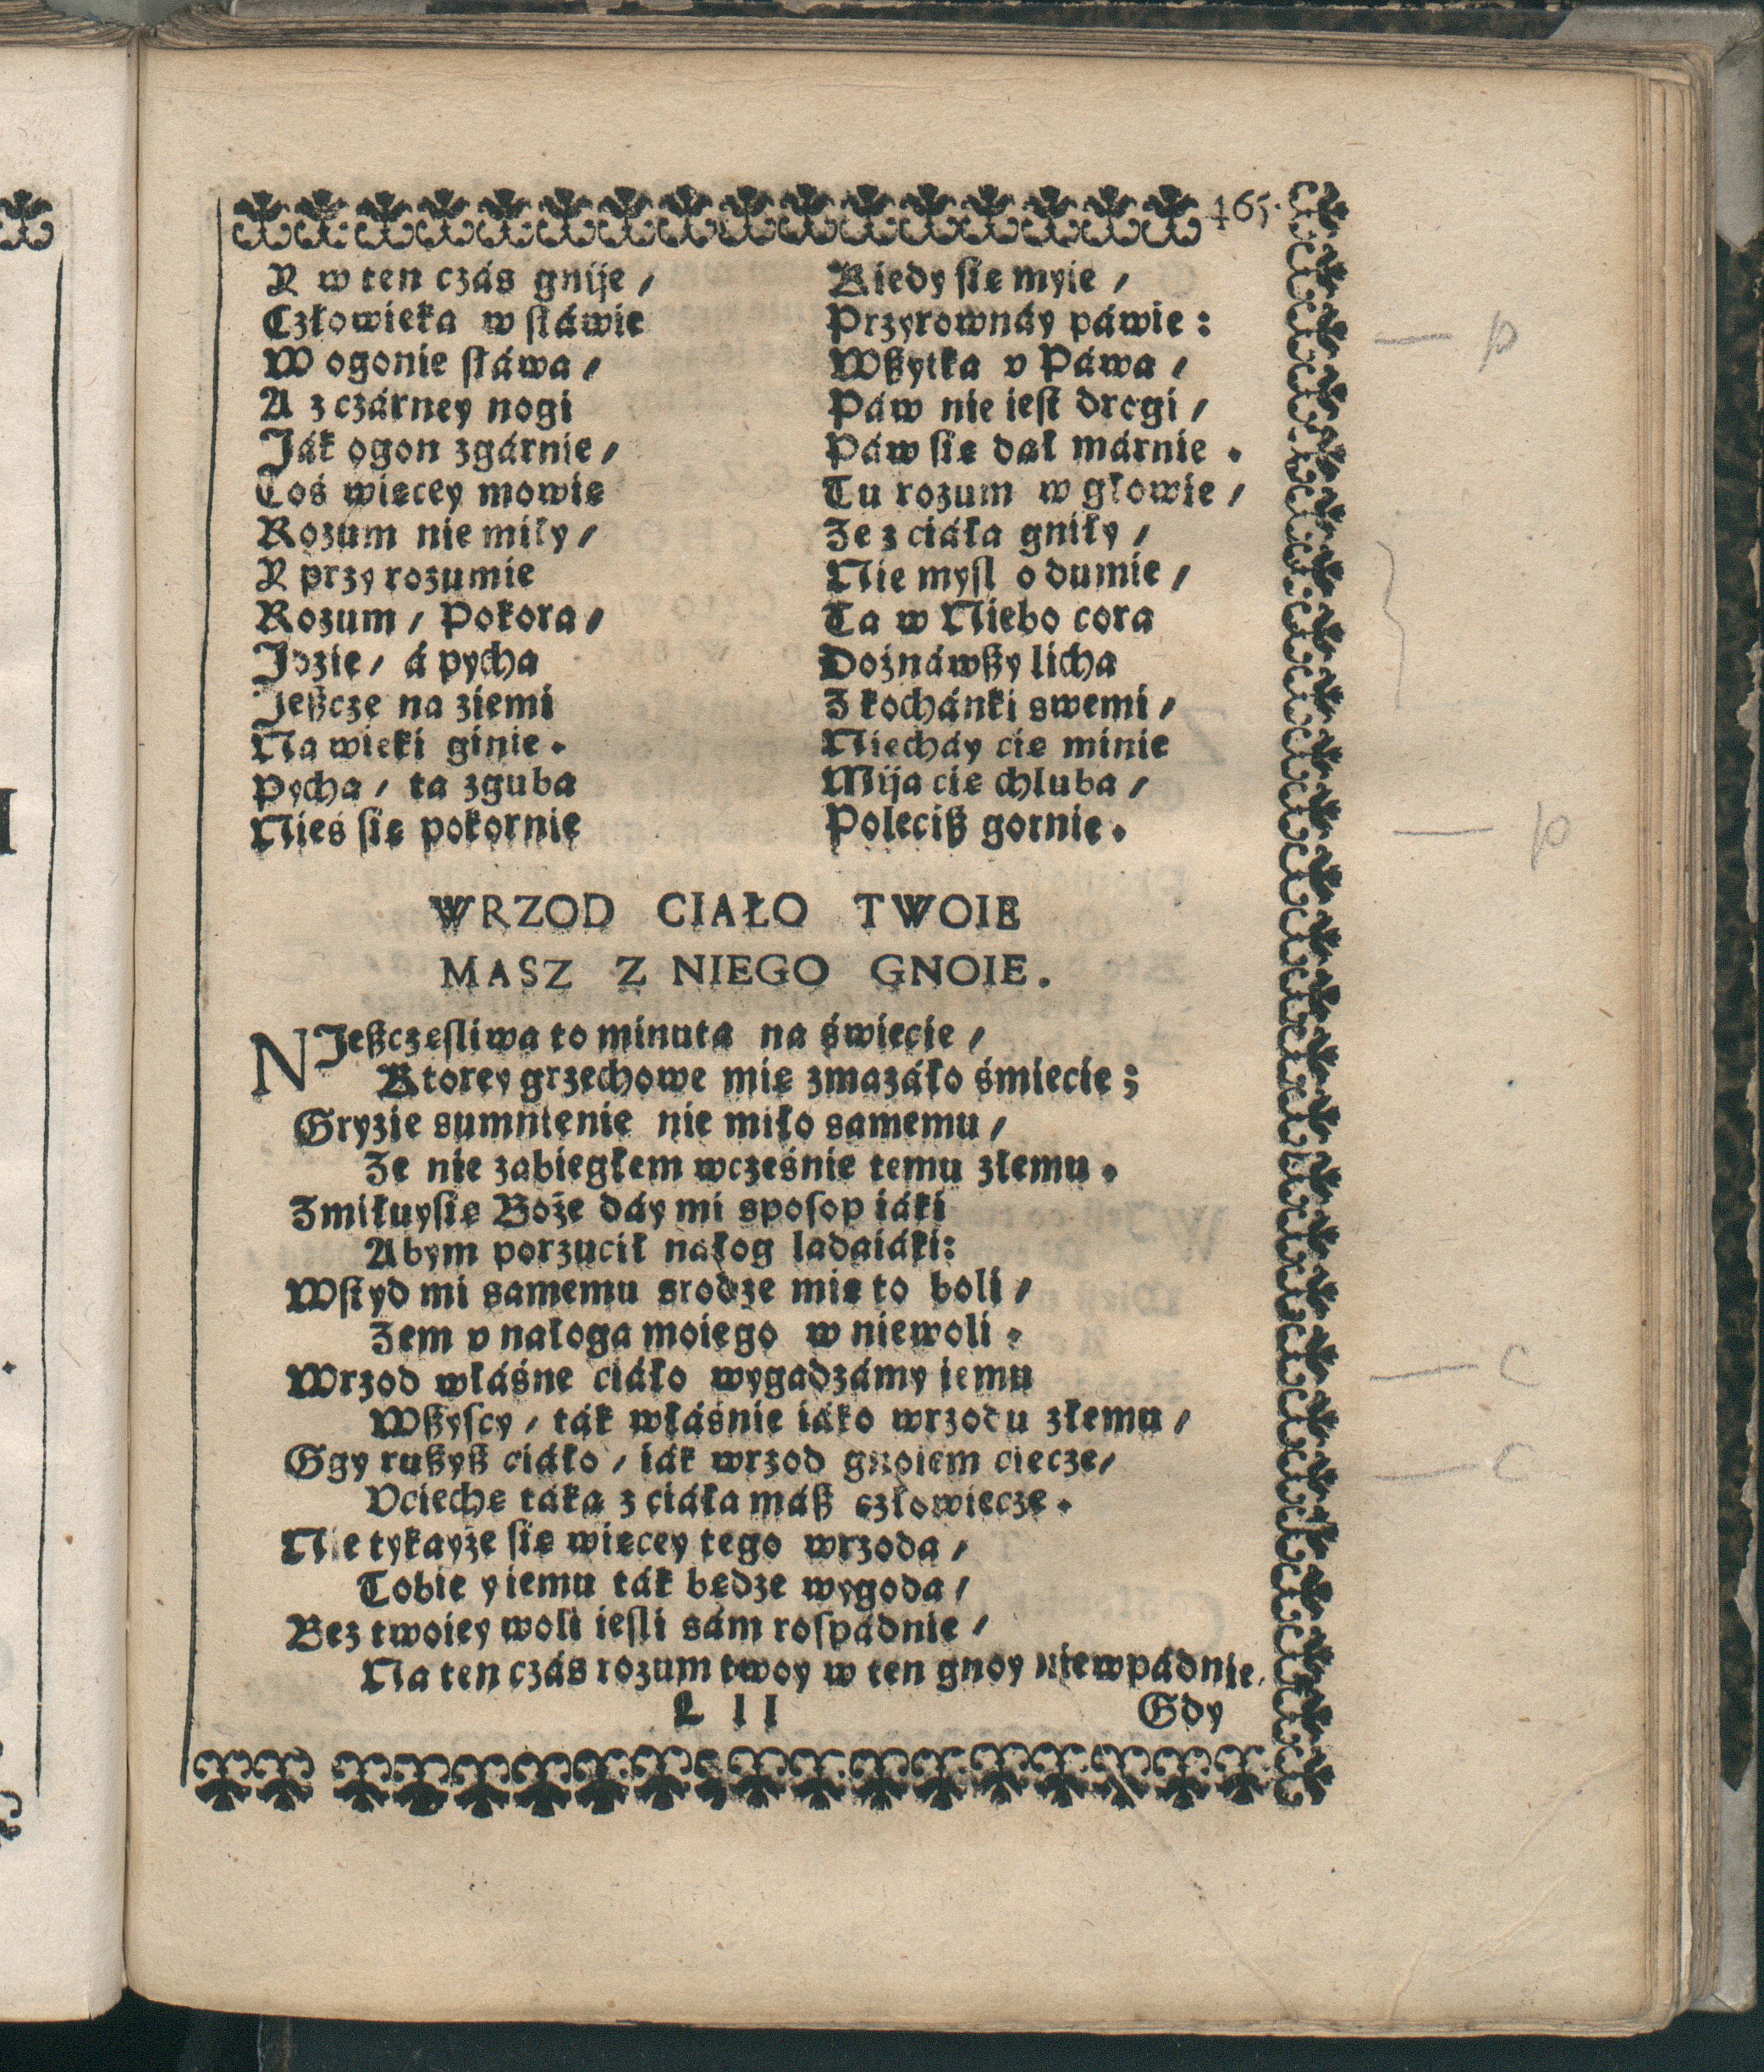 465.
Y w ten czás gnije / Kiedy się myie /
Człowieka w sławie Przyrownáy páwie :
W ogonie sława / Wßytka v Páwa /
A z czárney nogi Páw nie iest drogi /
Ják ogon zgárnie / Páw się dał márnie .
Coś więcey mowię Tu rozum w głowie /
Rozum nie miły / Ze z ciáła gniły /
Y przy rozumie Nie mysl o dumie /
Rozum / Pokora / Ta w Niebo cora
Jdzie / á pycha Doznáwßy licha
Jeßcze na ziemi Z kochánki swemi /
Na wieki ginie . Niecháy cię minie
Pycha / ta zguba Mija cię chluba /
Nieś się pokornie Poleciß gornie .
WRZOD CIAŁO TWOIE
MASZ Z NIEGO GNOIE.
NJeßczęsliwa to minuta na świecie /
Ktorey grzechowe mię zmazáło śmiecie ;
Gryzie sumnienie nie miło samemu /
Ze nie zabiegłem wcześnie temu złemu .
Zmiłuysię Boże dáy mi sposop iáki
Abym porzucił nałog ladaiáki:
Wstyd mi samemu srodze mię to boli /
Zem v nałoga moiego w niewoli .
Wrzod właśne ciáło wygadzámy iemu
Wßyscy / ták właśnie iáko wrzodu złemu /
Ggy rußyß ciáło / iák wrzod gnoiem ciecze /
Vciechę táką z ciáła máß człowiecze .
Nie tykayże się więcey tego wrzoda /
Tobie y iemu ták będze wygoda /
Bez twoiey woli iesli sám rospádnie /
Na ten czás rozum twoy w ten gnoy niewpádnie.
L l l Gdy